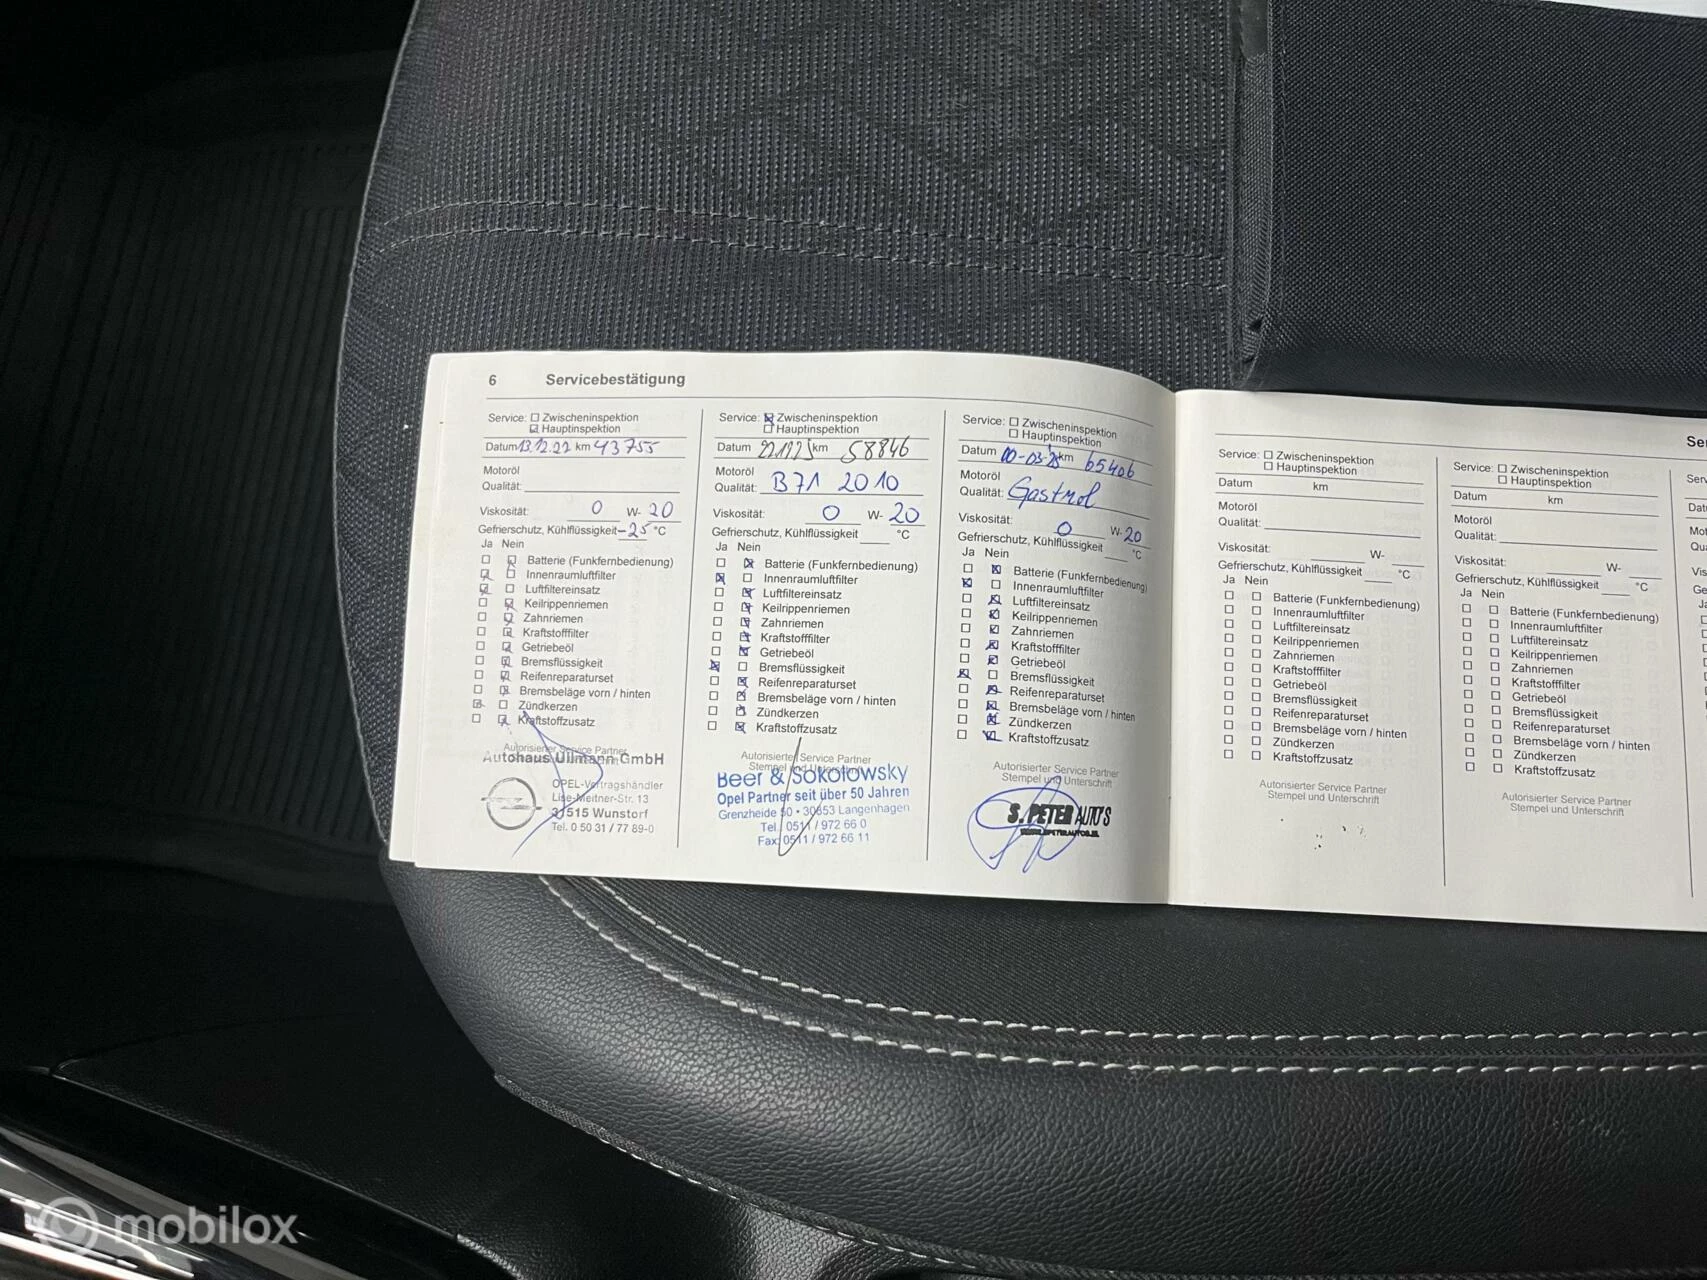 6 Servicebestätigung
Service: Zwischeninspektion
Hauptinspektion
Datum 13.12.22 km 43755
Motoröl
Qualität:
Viskosität: 0 W- 20
Gefrierschutz, Kühlflüssigkeit -25 °C
Ja Nein
Batterie (Funkfernbedienung)
Innenraumluftfilter
Luftfiltereinsatz
Keilrippenriemen
Zahnriemen
Kraftstofffilter
Getriebeöl
Bremsflüssigkeit
Reifenreparaturset
Bremsbeläge vorn / hinten
Zündkerzen
Kraftstoffzusatz
Autorisierter Service Partner
Autohaus Ullmann GmbH
OPEL-Vertragshändler
Lise-Meitner-Str. 13
31515 Wunstorf
Tel. 0 50 31 / 77 89-0
Service: Zwischeninspektion
Hauptinspektion
Datum km 58846
Motoröl
Qualität: B71 2010
Viskosität: 0 W- 20
Gefrierschutz, Kühlflüssigkeit °C
Ja Nein
Batterie (Funkfernbedienung)
Innenraumluftfilter
Luftfiltereinsatz
Keilrippenriemen
Zahnriemen
Kraftstofffilter
Getriebeöl
Bremsflüssigkeit
Reifenreparaturset
Bremsbeläge vorn / hinten
Zündkerzen
Kraftstoffzusatz
Autorisierter Service Partner
Stempel und Unterschrift
Beer & Sokolowsky
Opel Partner seit über 50 Jahren
Grenzheide 50 • 30853 Langenhagen
Tel. 0511 / 972 66 0
Fax: 0511 / 972 66 11
Service: Zwischeninspektion
Hauptinspektion
Datum km 65406
Motoröl
Qualität: Castrol
Viskosität: 0 W- 20
Gefrierschutz, Kühlflüssigkeit °C
Ja Nein
Batterie (Funkfernbedienung)
Innenraumluftfilter
Luftfiltereinsatz
Keilrippenriemen
Zahnriemen
Kraftstofffilter
Getriebeöl
Bremsflüssigkeit
Reifenreparaturset
Bremsbeläge vorn / hinten
Zündkerzen
Kraftstoffzusatz
Autorisierter Service Partner
Stempel und Unterschrift
S. PETER AUTO'S
Service: Zwischeninspektion
Hauptinspektion
Datum km
Motoröl
Qualität:
Viskosität: W-
Gefrierschutz, Kühlflüssigkeit °C
Ja Nein
Batterie (Funkfernbedienung)
Innenraumluftfilter
Luftfiltereinsatz
Keilrippenriemen
Zahnriemen
Kraftstofffilter
Getriebeöl
Bremsflüssigkeit
Reifenreparaturset
Bremsbeläge vorn / hinten
Zündkerzen
Kraftstoffzusatz
Autorisierter Service Partner
Stempel und Unterschrift
Service: Zwischeninspektion
Hauptinspektion
Datum km
Motoröl
Qualität:
Viskosität: W-
Gefrierschutz, Kühlflüssigkeit °C
Ja Nein
Batterie (Funkfernbedienung)
Innenraumluftfilter
Luftfiltereinsatz
Keilrippenriemen
Zahnriemen
Kraftstofffilter
Getriebeöl
Bremsflüssigkeit
Reifenreparaturset
Bremsbeläge vorn / hinten
Zündkerzen
Kraftstoffzusatz
Autorisierter Service Partner
Stempel und Unterschrift
mobilox